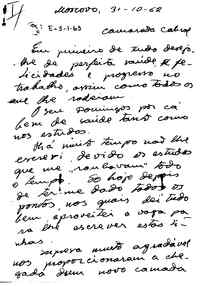 Moscovo, 31-10-62
E-3-1-63
Camarada Cabral
Em primeiro de tudo desejo-
lhe de perfeita saúde, fe-
licidades e progresso no
trabalho, assim como todos os
que lhe rodeiam.
O seu Domingos por cá
bem de saúde tanto como
nos estudos.
Há muito tempo não lhe
escrevi, devido os estudos
que me roubavam todo
o tempo. Só hoje depois
de ter-me dado todos os
pontos, nos quais dei tudo
bem, aproveitei a vaga pa-
ra lhe escrever estas li-
nhas.
Surpresa muito agradável
nos proporcionaram a che-
gada dum novo camada